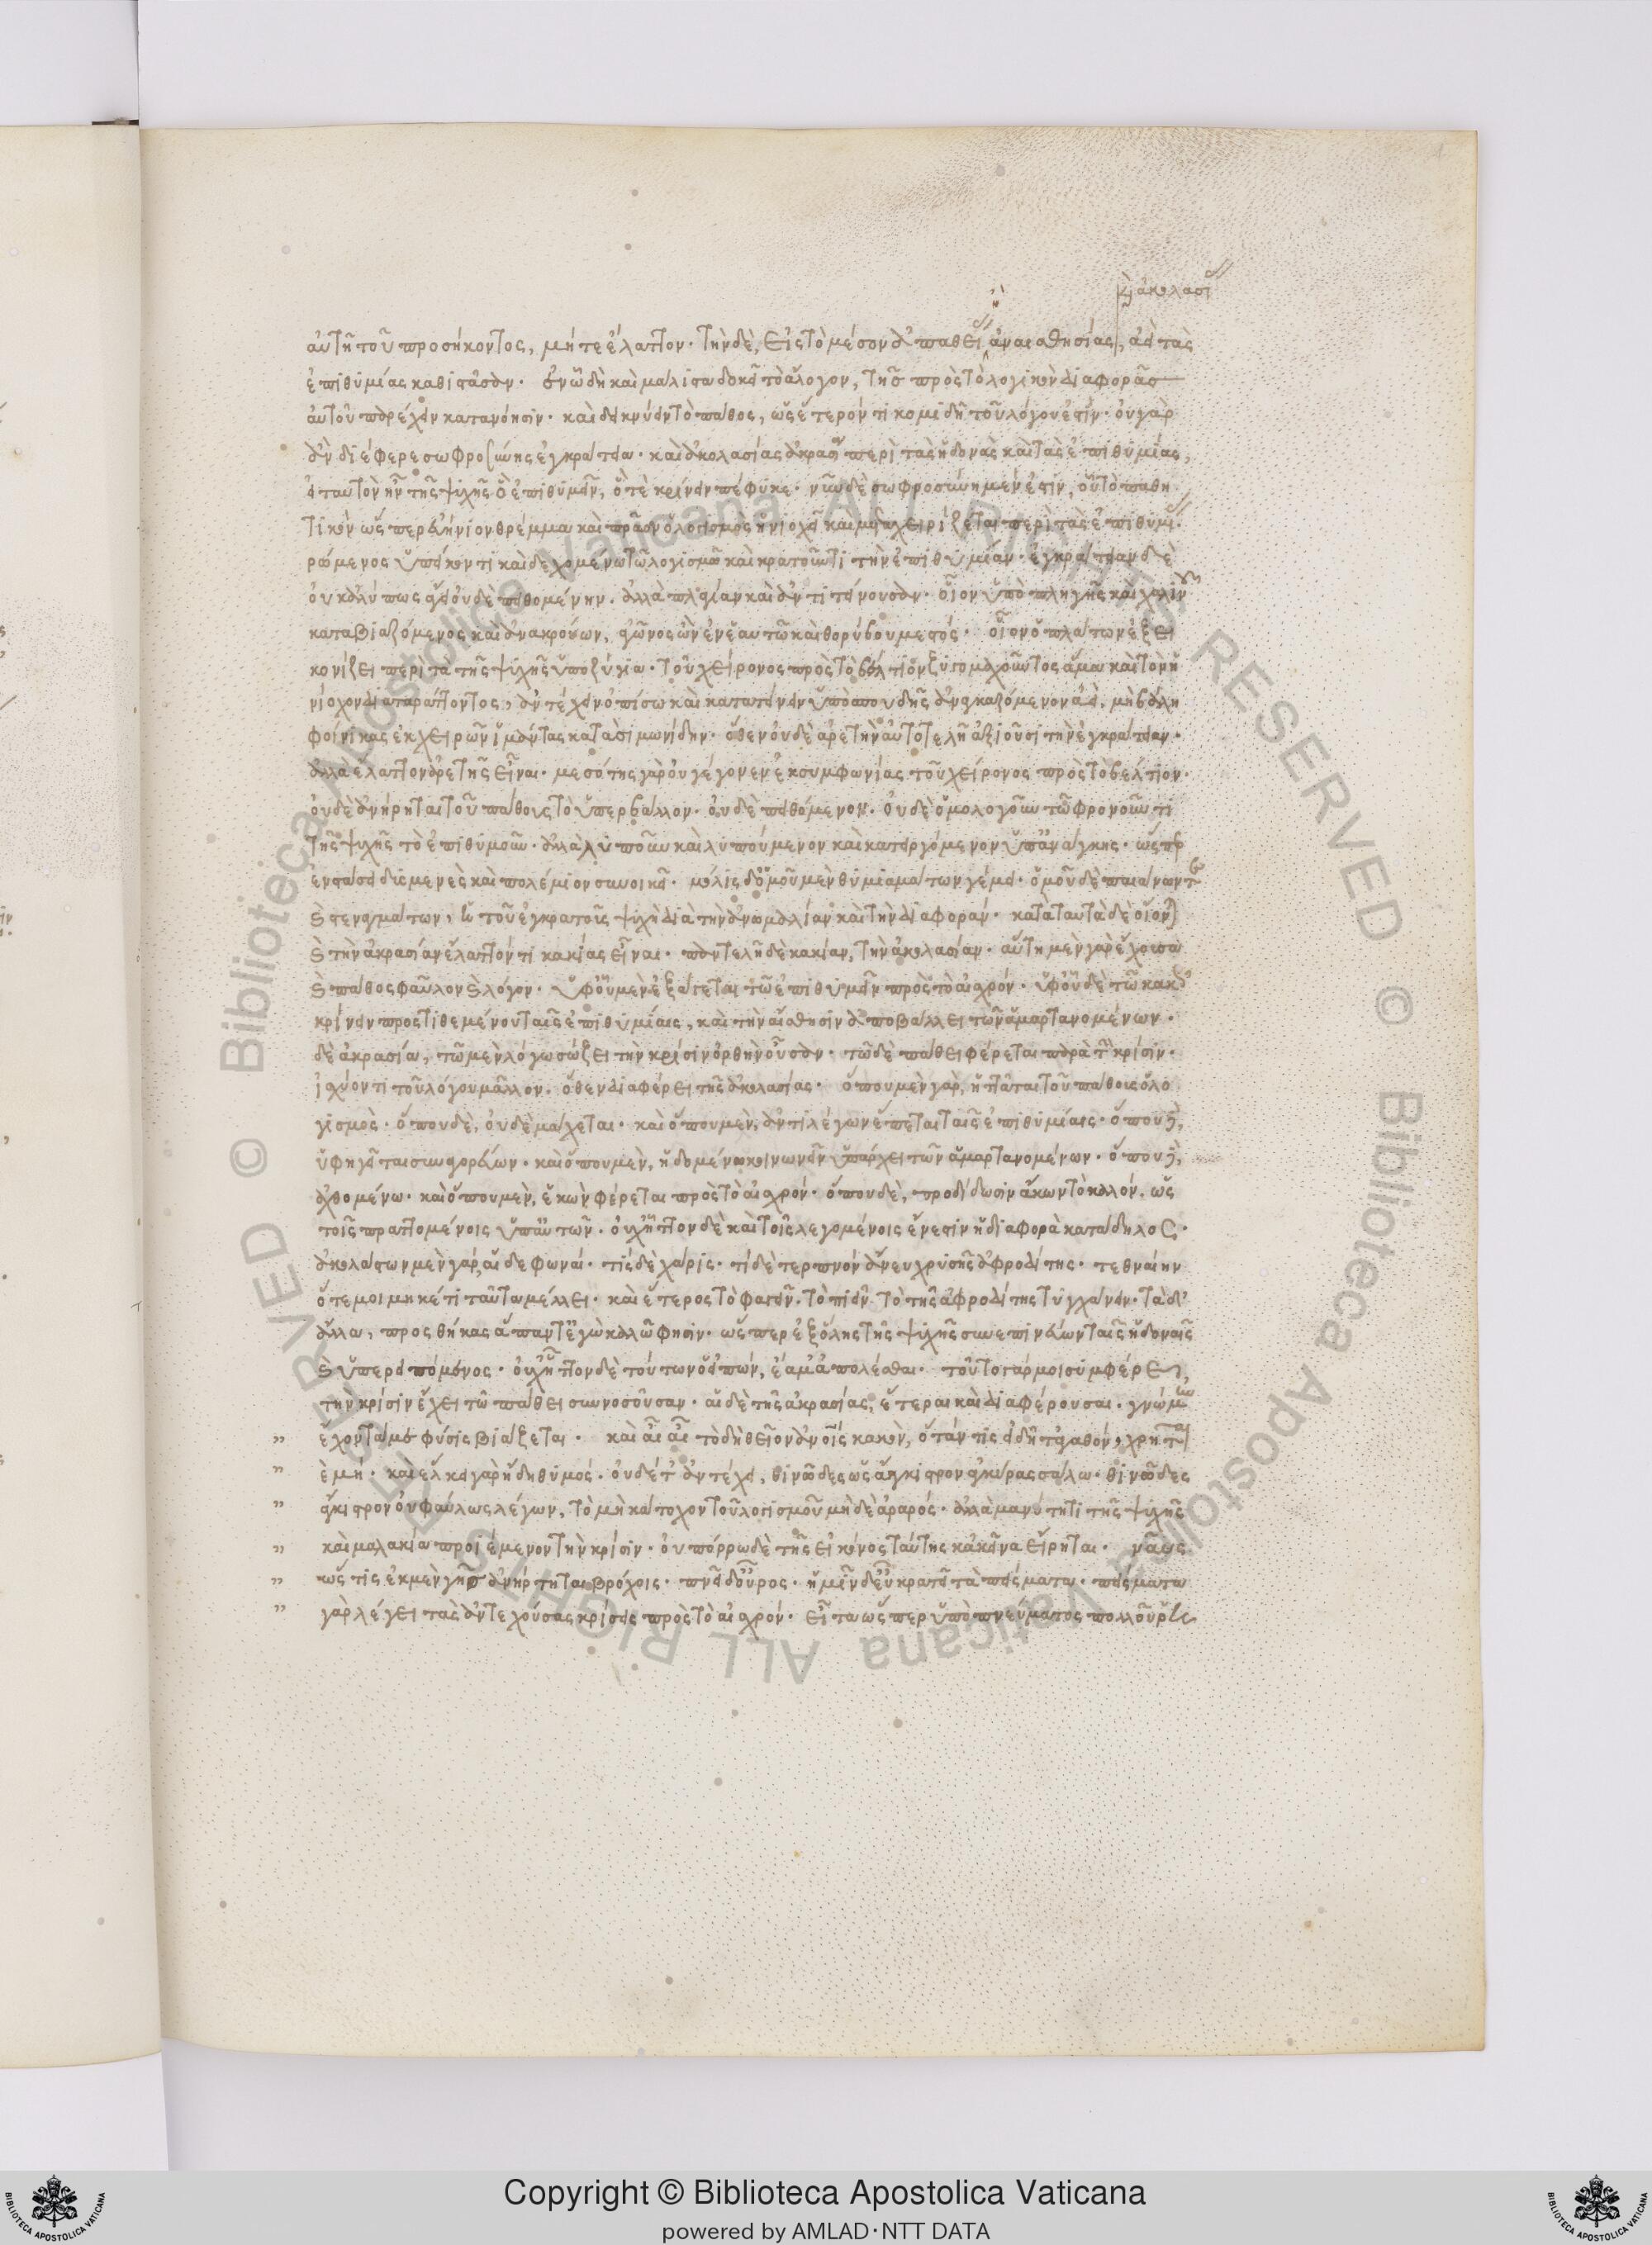 καὶ ἀκολασί
αὐτῆ τοῦ προσήκοντος, μήτε ἔλαττον· τὴν δὲ, εἰς τὸ μέσον ἀπαθεί ἀναισθησίας, ἀεὶ τὰς
ἐπιθυμίας καθιστᾶσαν· ἐν ὧ δὴ καὶ μάλιστα δοκεῖ τὸ ἄλογον, τῆς πρὸς τὸ λογικὸν διαφορᾶς
αὑτοῦ παρέχειν κατανόησιν· καὶ δεικνύειν τὸ πάθος, ὡς ἕτερόν τι κομιδῆ τοῦ λόγου ἐστίν· οὐ γὰρ
ἂν διέφερε σωφροσύνης ἐγκράτεια· καὶ ἀκολασίας ἀκρασία περὶ τὰς ἡδονὰς καὶ τὰς ἐπιθυμίας,
εἰ ταυτὸν ἦν τῆς ψυχῆς ὧ ἐπιθυμεῖν, ὧτε κρίνειν πέφυκε· νῦν δὲ σωφροσύνη μέν ἐστίν, οὗ τὸ παθη
τικὸν ὥσπερ εὐήνιον θρέμμα καὶ πρᾶον ὁ λογισμὸς ἡνιοχεῖ καὶ μεταχειρίζεται περὶ τὰς ἐπιθυμί
χρώμενος ὑπείκοντι καὶ δεχομένω τῶ λογισμῶ καὶ κρατοῦντι τὴν ἐπιθυμίαν· ἐγκράτειαν δὲ
οὐκ ἀλύπως ἄγει οὐδὲ πειθομένην· ἀλλὰ πλαγίαν καὶ ἀντιτείνουσαν· οἷον ὑπὸ πληγῆς καὶ χαλιν
καταβιαζόμενος καὶ ἀνακρούων, ἀγῶνος ὢν ἐν ἑαυτῶ καὶ θορύβου μεστός· οἷον ὁ πλάτων ἐξει
κονίζει περὶ τὰ τῆς ψυχῆς ὑποζύγια· τοῦ χείρονος πρὸς τὸ βέλτιον ζυγομαχοῦντος ἅμα καὶ τὸν ἡ
νίοχον διαταράττοντος, ἀντέχειν ὀπίσω καὶ κατατείνειν ὑπὸ σπουδῆς ἀναγκαζόμενον ἀεὶ, μὴ βάλη
φοίνικας ἐκ χειρῶν ἱμάντας κατὰ σιμωνίδην· ὅθεν οὐδὲ ἀρετὴν αὐτοτελῆ ἀξιοῦσι τὴν ἐγκράτειαν·
ἀλλὰ ἔλαττον ἀρετῆς εἶναι· μεσότης γὰρ οὐ γέγονεν ἐκ συμφωνίας τοῦ χείρονος πρὸς τὸ βέλτιον·
οὐδὲ ἀνήρηται τοῦ πάθους τὸ ὑπερβάλλον· οὐδὲ πειθόμενον· οὐδὲ ὁμολογοῦν τῶ φρονοῦντι
τῆς ψυχῆς τὸ ἐπιθυμοῦν· ἀλλὰ λυποῦν καὶ λυπούμενον καὶ κατειργόμενον ὑπ' ἀνάγκης· ὥσπερ
ἐν στάσει δυσμενὲς καὶ πολέμιον συνοικεῖ· πόλις δ' ὁμοῦ μὲν θυμιαμάτων γέμει· ὁμοῦ δὲ παιάνων τε
καὶ στεναγμάτων, ἡ τοῦ ἐγκρατοῦς ψυχὴ διὰ τὴν ἀνωμαλίαν καὶ τὴν διαφοράν· κατὰ ταυτὰ δὲ οἴον
καὶ τὴν ἀκρασίαν ἔλαττόν τι κακίας εἶναι· παντελῆ δὲ κακίαν, τὴν ἀκολασίαν· αὕτη μὲν γὰρ ἔχουσα
καὶ πάθος φαῦλον καὶ λόγον· ὑφ' οὗ μὲν ἐξάγεται τῶ ἐπιθυμεῖν πρὸς τὸ αἰσχρόν· ὑφ' οὗ δὲ τῶ κακῶς
κρίνειν προστιθεμένου ταῖς ἐπιθυμίαις, καὶ τὴν αἴσθησιν ἀποβάλλει τῶν ἁμαρτανομένων·
δὲ ἀκρασία, τῶ μὲν λόγω σώζει τὴν κρίσιν ὀρθὴν οὖσαν· τῶ δὲ πάθει φέρεται παρὰ τὴν κρίσιν·
ἰσχύοντι τοῦ λόγου μᾶλλον· ὅθεν διαφέρει τῆς ἀκολασίας· ὅπου μὲν γὰρ, ἡττᾶται τοῦ πάθους ὁ λο
γισμὸς· ὅπου δὲ, οὐδὲ μάχεται· καὶ ὅπου μὲν, ἀντιλέγων ἕπεται ταῖς ἐπιθυμίαις· ὅπου δὲ,
ὑφηγεῖται συναγορεύων· καὶ ὅπου μὲν, ἡδομένω κοινωνεῖν ὑπάρχει τῶν ἁμαρτανομένων· ὅπου δὲ,
ἀχθομένω· καὶ ὅπου μὲν, ἑκὼν φέρεται πρὸς τὸ αἰσχρόν· ὅπου δὲ, προδίδωσιν ἄκων τὸ καλόν. ὡς
τοῖς πραττομένοις ὑπ' αὐτῶν· οὐχ' ἧττον δὲ καὶ τοῖς λεγομένοις ἔνεστιν ἡ διαφορὰ κατάδηλος·
ἀκολάστων μὲν γάρ αἵδε φωναί· τίς δὲ χάρις· τί δὲ τερπνὸν ἄνευ χρυσῆς ἀφροδίτης· τεθναίην
ὅτε μοι μηκέτι ταῦτα μέλλει· καὶ ἕτερος τὸ φαγεῖν· τὸ πιεῖν τὸ τῆς ἀφροδίτης τυγχάνειν· τὰ δ'
ἄλλα, προσθήκας ἅπαντ' ἐγὼ καλῶ φησιν· ὥσπερ ἐξ ὅλης τῆς ψυχῆς συνεπινεύων ταῖς ἡδοναῖς
καὶ ὑπερειπόμενος· οὐχ' ἧττον δὲ τούτων ὁ εἰπὼν, ἔα μ' ἀπολέσθαι· τοῦτο γάρ μοι συμφέρει,
τὴν κρίσιν ἔχει τῶ πάθει συννοσοῦσαν· αἱ δὲ τῆς ἀκρασίας, ἕτεραι καὶ διαφέρουσαι· γνώμην
„ ἔχοντά με φύσις βιάζεται· καὶ αἲ αἲ τὸ δὴ θεῖον ἀνθρώποις κακὸν, ὅτάν τις εἰδῆ τἀγαθὸν, χρῆται
„ δὲ μή· καὶ εἴκει γὰρ ἤδη θυμός· οὐδέτ' ἀντέχει, θινῶδες ὡς ἄγκιστρον ἀγκύρας σάλω· θινῶδες
„ ἄγκιστρον οὐ φαύλως λέγων, τὸ μὴ κάτοχον τοῦ λογισμοῦ μηδὲ ἀραρός· ἀλλὰ μανότητι τῆς ψυχῆς
„ καὶ μαλακία προϊέμενον τὴν κρίσιν· οὐ πόρρω δὲ τῆς εἰκόνος ταύτης κἀκεῖνα εἴρηται· ναῦς
„ ὥς τις ἐκ μὲν γῆς ἀνήρτηται βρόχοις· πνεῖ δ' οὖρος· ἡμῖν δ' οὐ κρατεῖ τὰ πείσματα· πείσματα
„ γὰρ λέγει τὰς ἀντεχούσας κρίσεις πρὸς τὸ αἰσχρόν· εἶτα ὥσπερ ὑπὸ πνεύματος πολλοῦ